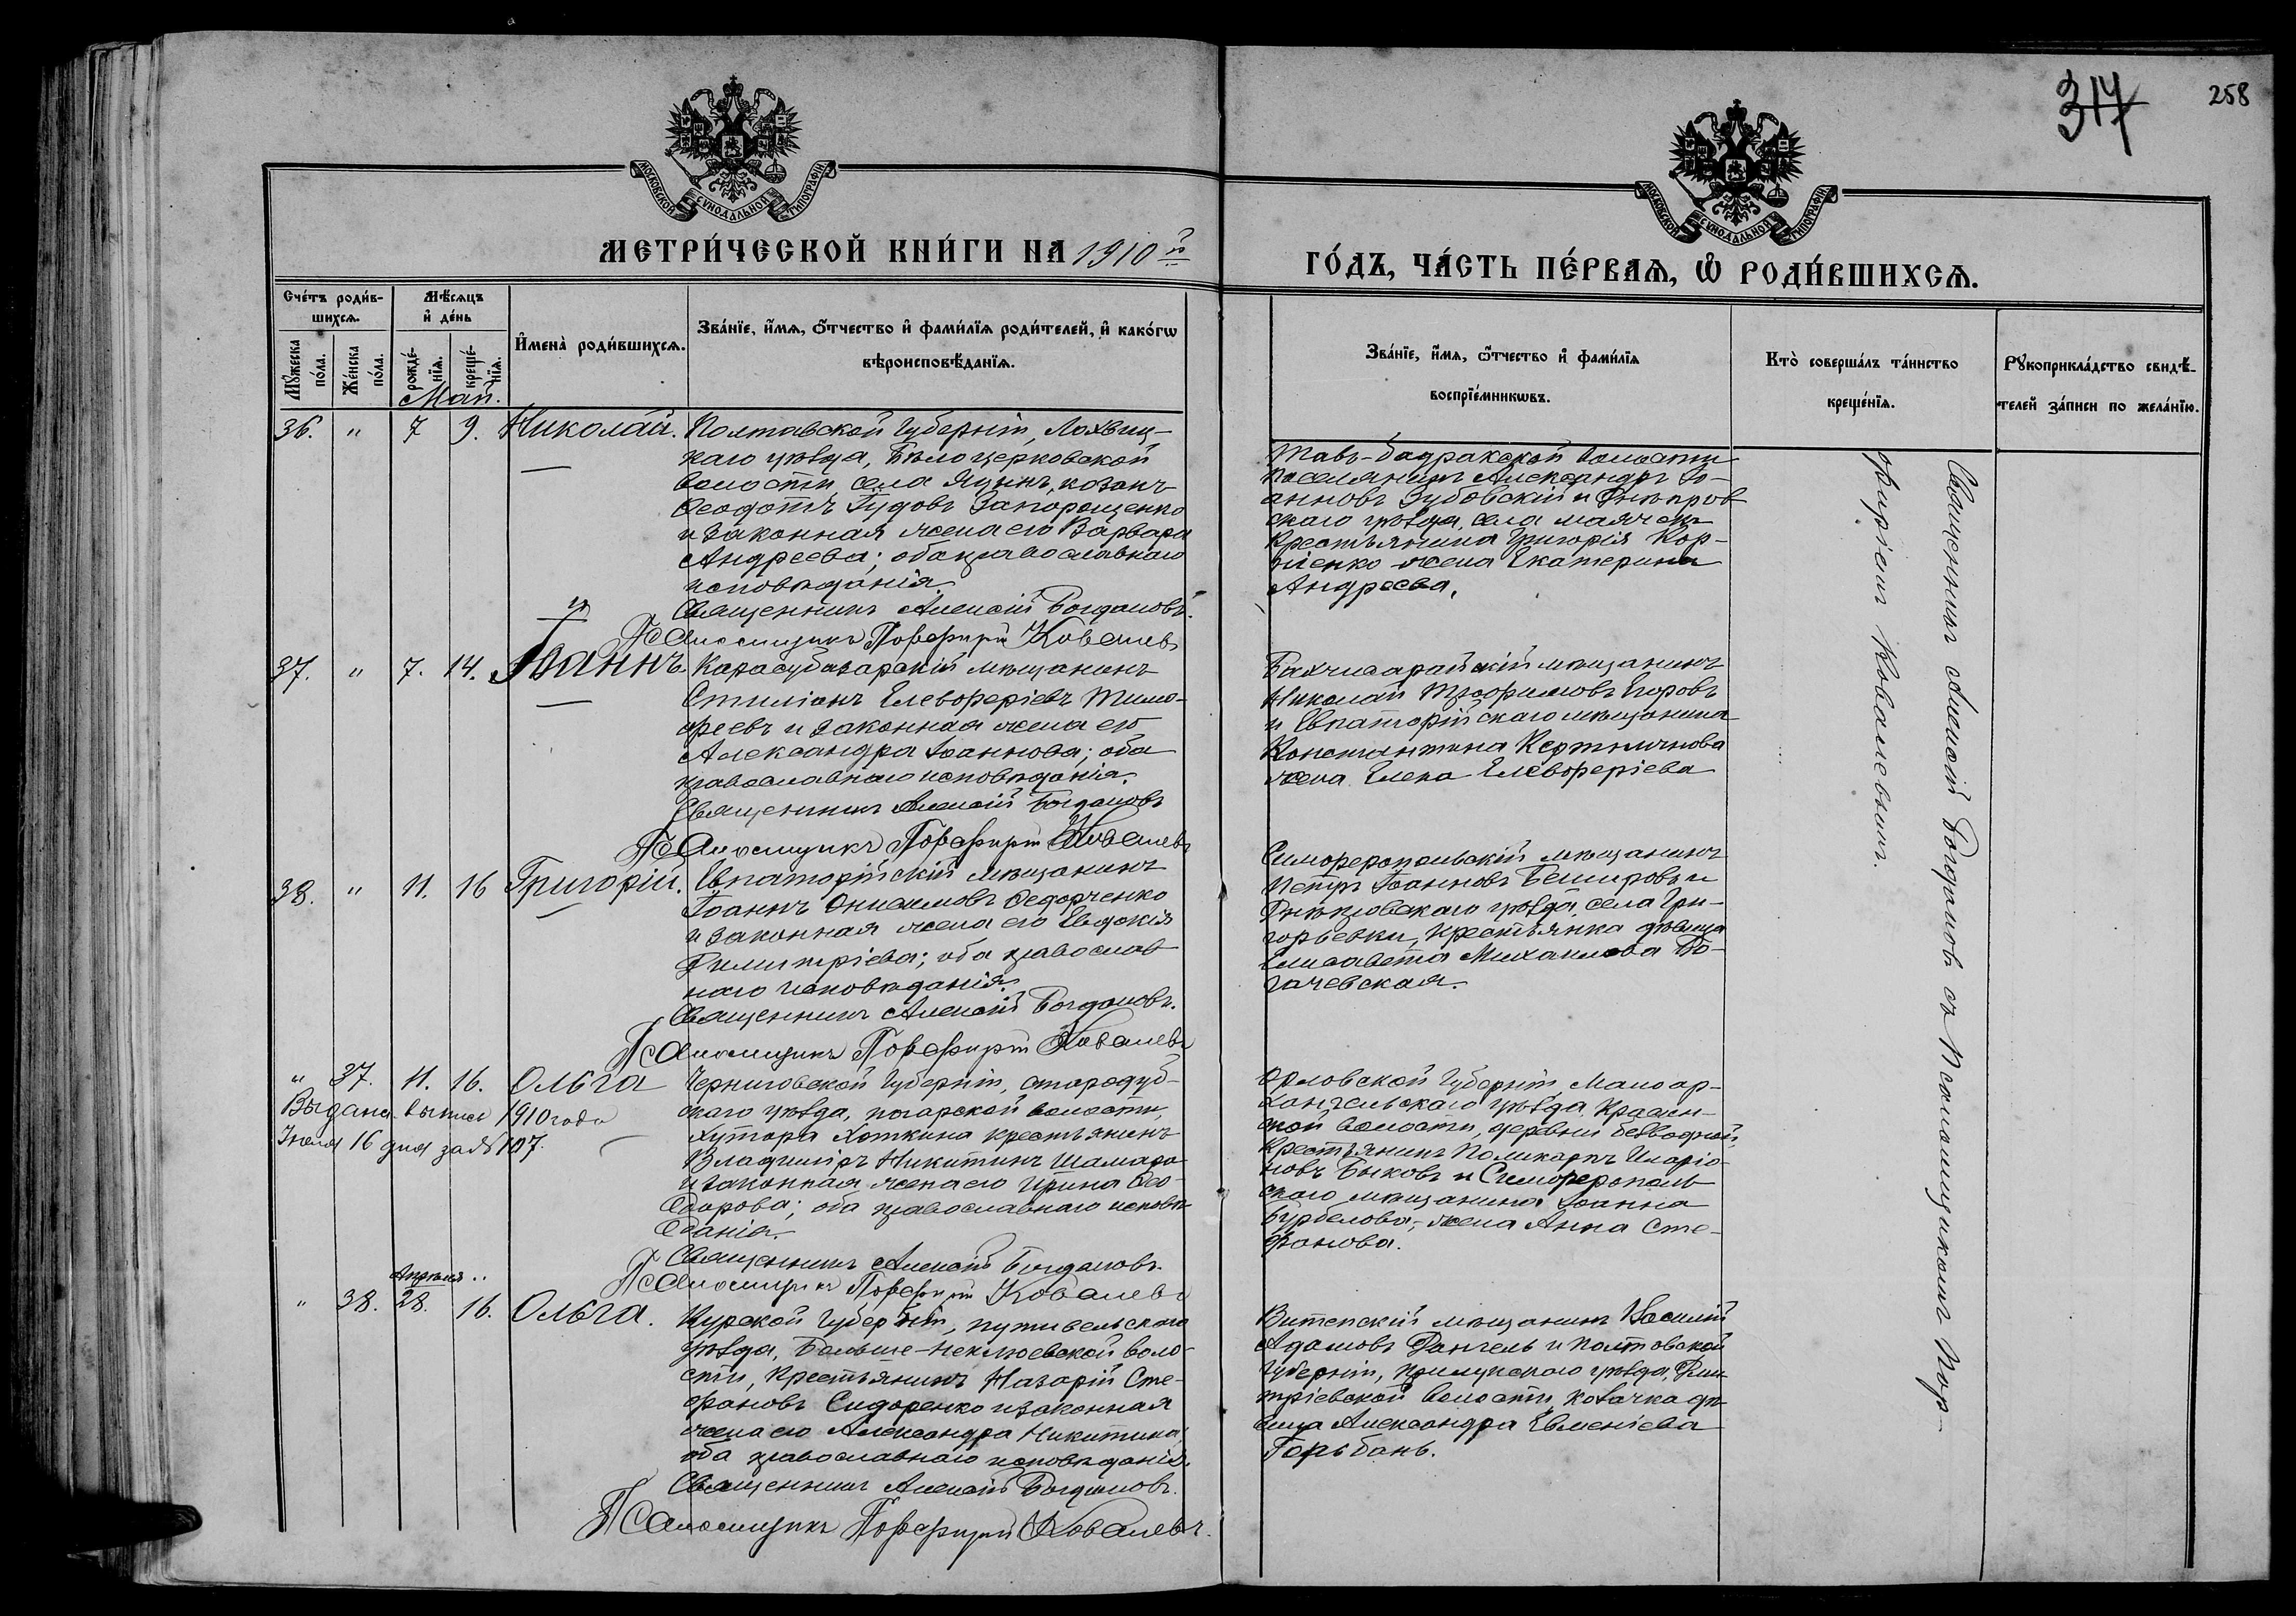 314
258
МОСКОВСКОЙ СѴНОДАЛЬНОЙ ТИПОГРАФІИ
МОСКОВСКОЙ СѴНОДАЛЬНОЙ ТИПОГРАФІИ
МЕТРИ́ЧЕСКОЙ КНИ́ГИ НА 1910 й
ГО́ДЪ, ЧА́СТЬ ПЕ́РВАѦ, Ѿ РОДИ́ВШИХСѦ.
Сче́тъ роди́в-
шихсѧ.
Мꙋ́жеска по́ла.
Же́нска по́ла.
Мѣ́сѧцъ
и҆ де́нь
рожде́-
нїѧ.
креще́-
нїѧ.
И҆мена̀ роди́вшихсѧ.
Зва́нїе, и҆́мѧ, ѻ҆́тчество и҆ фами́лїѧ роди́телей, и҆ како́гѡ
вѣроисповѣ́данїѧ.
Зва́нїе, и҆́мѧ, ѻ҆́тчество и҆ фами́лїѧ
воспрїе́мникѡвъ.
Кто̀ соверша́лъ та́инство
креще́нїѧ.
Рꙋкоприкла́дство свидѣ́-
телей за́писи по жела́нїю.
Май.
36. " 7 9. Николай.
Полтавской Губерніи, Лохвиц-
каго уѣзда, Бѣлоцерковской
волости села Яцынъ, козакъ
Ѳеодотъ Гудовъ Запорощенко
и законная жена его Варвара
Андреева; оба православнаго
исповѣданія.
Священникъ Алексій Богдановъ.
Псаломщикъ Порфирій Ковалевъ
Тавъ-Бадракской волости
поселянинъ Александръ Іо-
анновъ Зубовскій и Днѣпров
скаго уѣзда, села Маячекъ
крестьянина Григорія Кор-
ніенко жена Екатерина
Андреева.
37. " 7. 14. Іоаннъ.
Карасубазарскій мѣщанинъ
Стиліанъ Елевферіевъ Тимо-
феевъ и законная жена его
Александра Іоаннова; оба
православнаго исповѣданія.
Священникъ Алексій Богдановъ
Псаломщикъ Порфирій Ковалевъ
Бахчисарайскій мѣщанинъ
Николай Трофимовъ Егоровъ
и Евпаторійскаго мѣщанина
Константина
жена Елена Елевферіева
38. " 11. 16 Григорій.
Евпаторійскій мѣщанинъ
Іоаннъ Онисимовъ Федорченко
и законная жена его Евдокія
Димитріева; оба православ
наго исповѣданія.
Священникъ Алексій Богдановъ.
Псаломщикъ Порфирій Ковалевъ
Симферопольскій мѣщанинъ
Петръ Іоанновъ Бешировъ и
Днѣпровскаго уѣзда, села Гри-
горьевки, крестьянка дѣвица
Елисавета Михаилова По-
гачевская.
" 37. 11. 16. Ольга
Выдана выпись 1910 года
Іюля 16 дня за № 107.
Черниговской Губерніи, стародуб-
скаго уѣзда, погарской волости,
хутора Хоткина крестьянинъ
Владиміръ Никитинъ Шамаро
и законная жена его Ирина Ѳео-
дорова; оба православнаго исповѣ-
данія.
Священникъ Алексій Богдановъ.
Псаломщикъ Порфирій Ковалевъ
Орловской Губерніи, Малоар-
хангельскаго уѣзда, Красен-
ской волости, деревни Безводной,
крестьянинъ Поликарпъ Иларіо-
новъ Быковъ и Симферополь
скаго мѣщанина Іоанна
Бурбелова, жена Анна Сте-
фанова.
Апрѣля
" 38. 28. 16. Ольга.
Курской Губерніи, путивельскаго
уѣзда, Больше-Неклюевской воло-
сти, крестьянинъ Назарій Сте-
фановъ Сидоренко и законная
жена его Александра Никитина;
оба православнаго исповѣданія.
Священникъ Алексій Богдановъ.
Псаломщикъ Порфирій Ковалевъ.
Витепскій мѣщанинъ Василій
Адамовъ Дангель и Полтавской
Губерніи, Прилукскаго уѣзда, Дми
тріевской волости, козачка дѣ-
вица Александра Евменіева
Горьбань.
Священникъ Алексій Богдановъ съ Псаломщикомъ Пор-
фиріемъ Ковалевымъ.